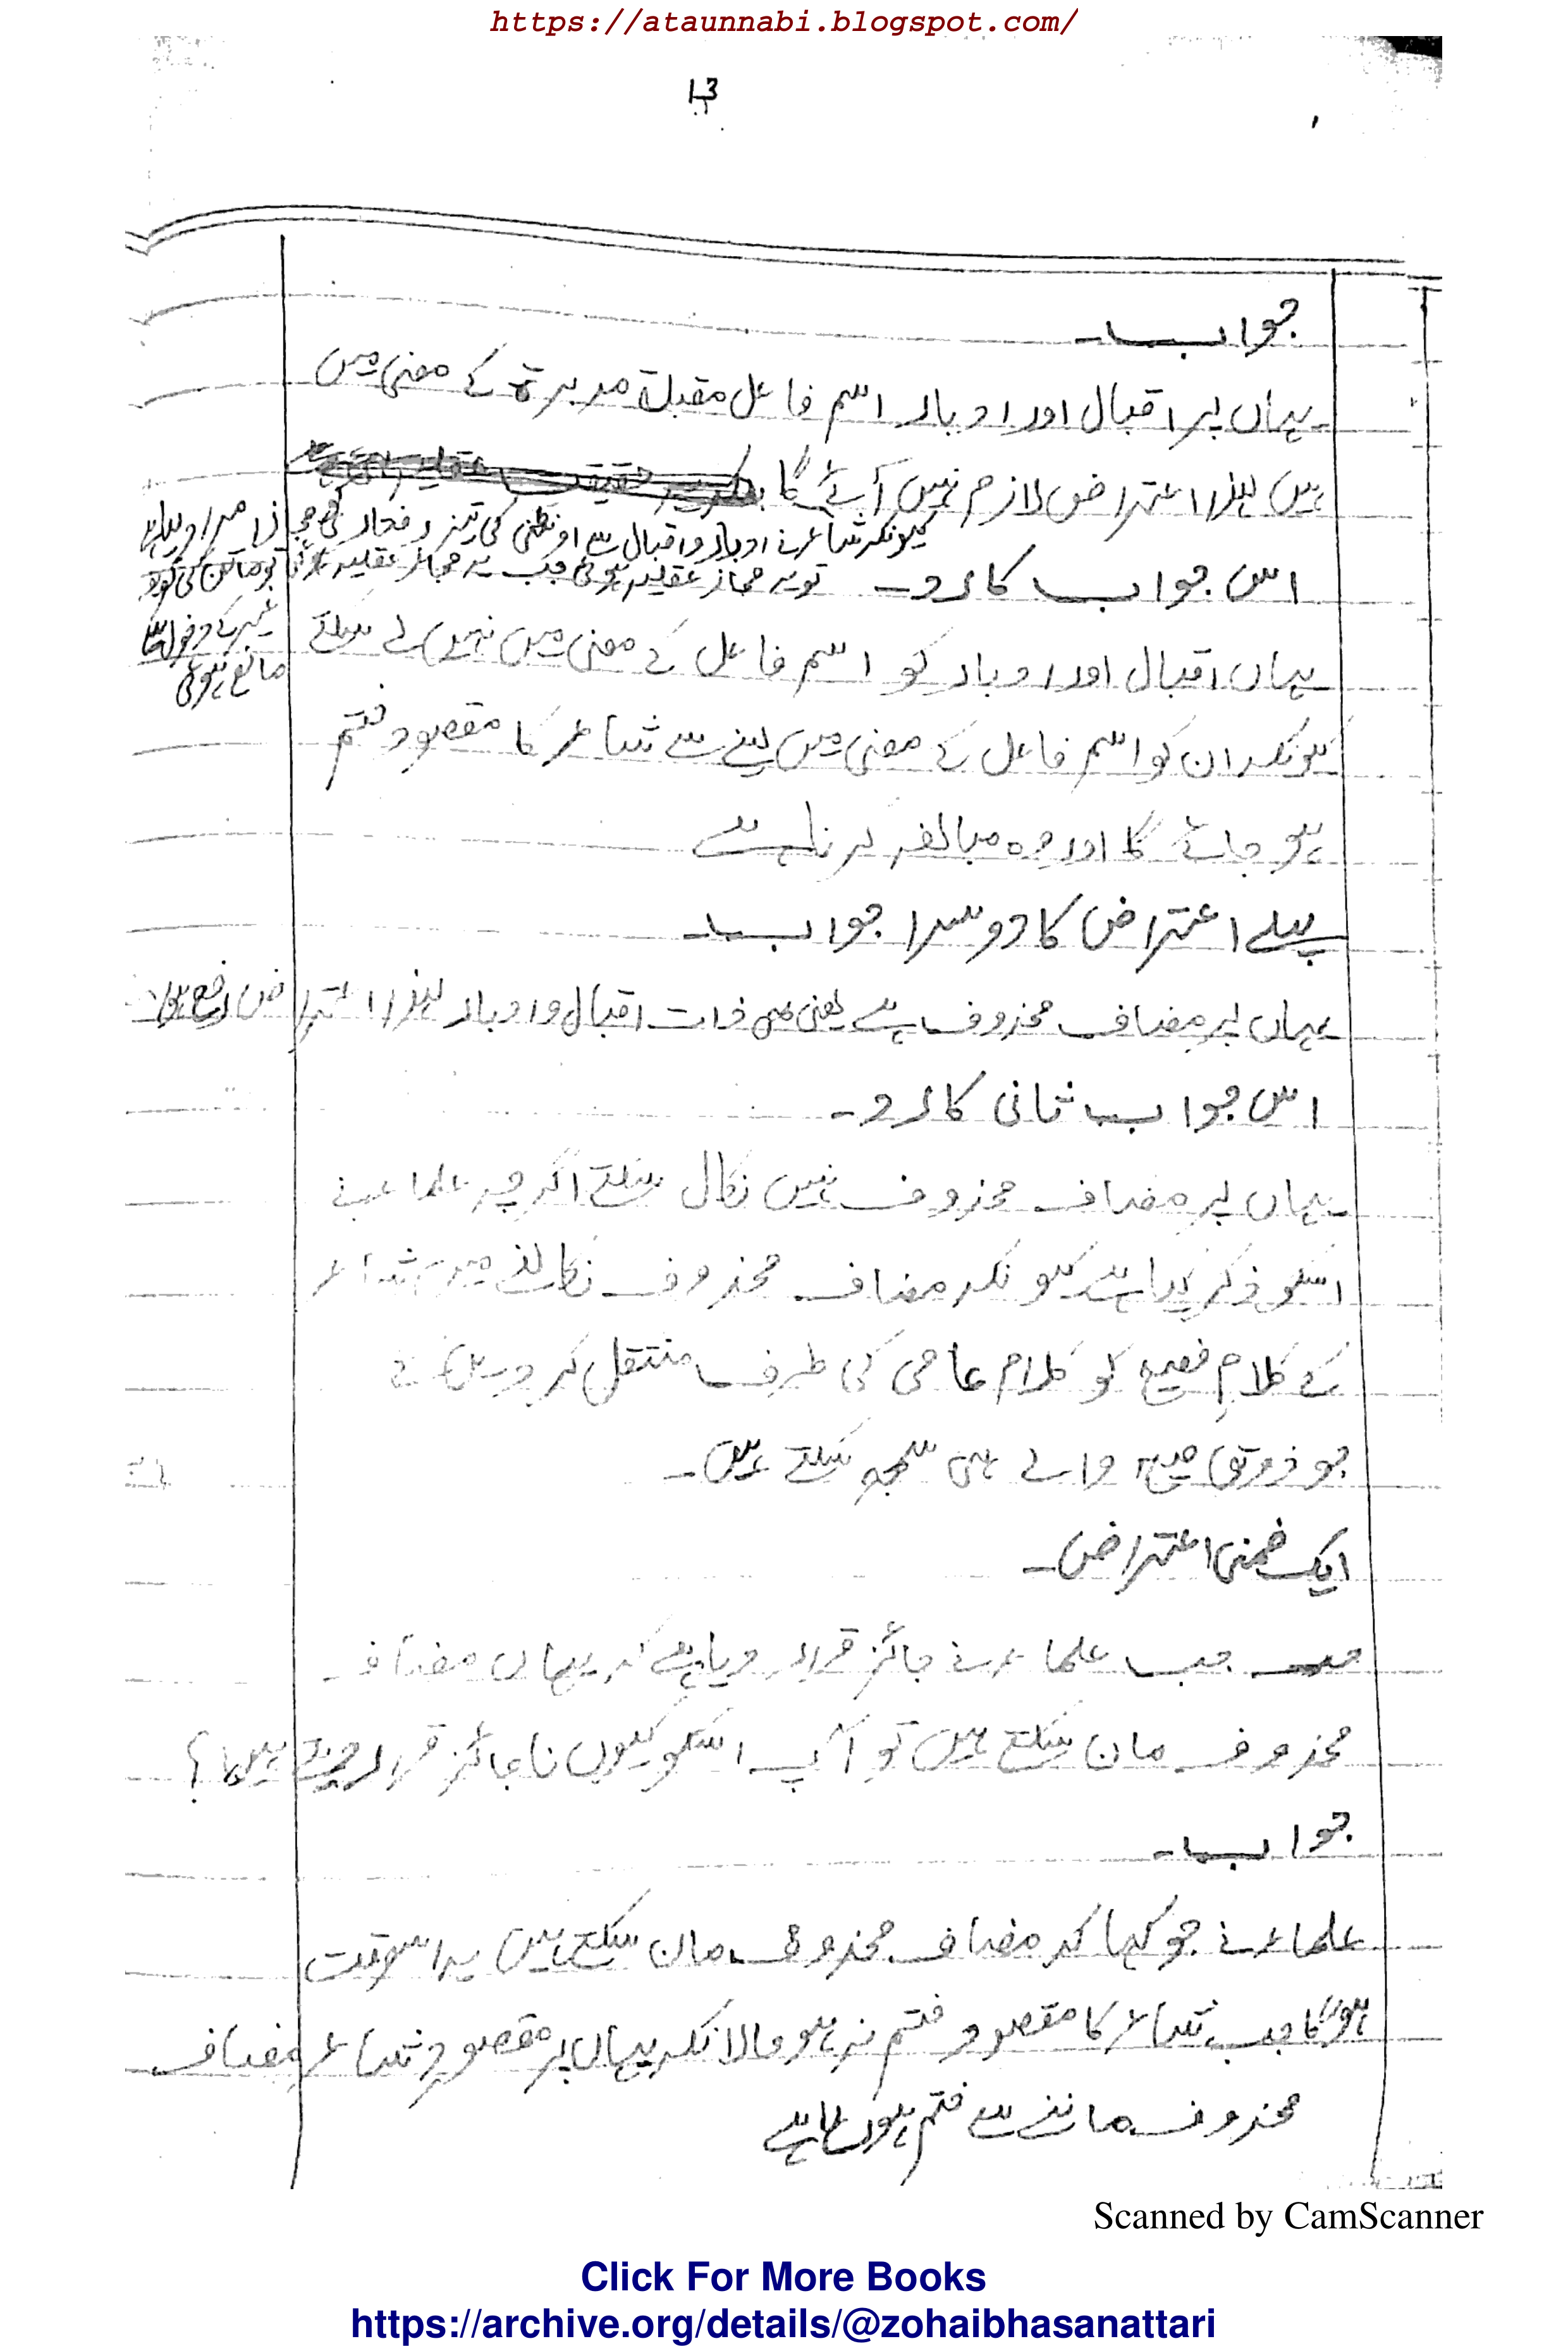 https://ataunnabi.blogspot.com/
13
جواب۔
یہاں پر اقبال اور ادبار اسم فاعل مقبلة مدبرة کے معنی میں
ہیں لہٰذا اعتراض لازم نہیں آئے گا
کیونکہ شاعر نے ادبار و اقبال سے اونٹنی کی تیز رفتار
اس جواب کا رد۔ تو یہ مجاز عقلیہ ہوئی جب یہ مجاز عقلیہ
غیر کے دخول سے
مانع ہوئی
یہاں اقبال اور ادبار کو اسم فاعل کے معنی میں نہیں لے سکتے
کیونکہ ان کو اسم فاعل کے معنی میں لینے سے شاعر کا مقصود ختم
ہو جائے گا اور وہ مبالغہ کرنا ہے
پہلے اعتراض کا دوسرا جواب۔
یہاں پر مضاف محذوف ہے یعنی ھی ذات اقبال و ادبار لہٰذا اعتراض رفع ہوا
اس جواب ثانی کا رد۔
یہاں پر مضاف محذوف نہیں نکال سکتے اگرچہ علماء نے
اسکو ذکر کیا ہے کیونکہ مضاف محذوف نکالنے میں شاعر
کے کلامِ فصیح کو کلام عامی کی طرف منتقل کر دیں گے
جو ذوق صحیح والے ہی سمجھ سکتے ہیں۔
ایک ضمنی اعتراض۔
جب علماء نے جائز قرار دیا ہے کہ یہاں مضاف
محذوف مان سکتے ہیں تو آپ اسکو کیوں ناجائز قرار دیتے ہیں؟
جواب۔
علماء نے جو کہا کہ مضاف محذوف مان سکتے ہیں یہ اسوقت
ہوگا جب شاعر کا مقصود ختم نہ ہو حالانکہ یہاں پر مقصودِ شاعر مضاف
محذوف ماننے سے ختم ہو رہا ہے
Scanned by CamScanner
Click For More Books
https://archive.org/details/@zohaibhasanattari